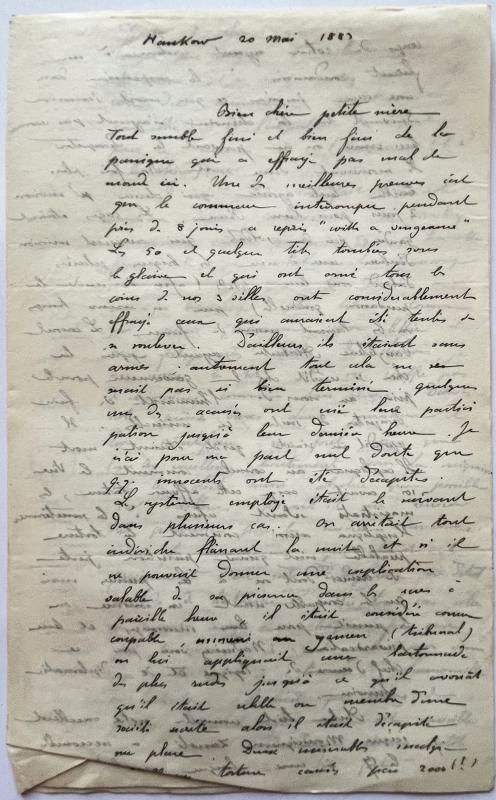 Hankow 20 Mai 1883
Bien chère petite mère
Tout semble fini et bien fini de la
panique qui a effrayé pas mal de
monde ici. Une des meilleures preuves c'est
que le commerce interrompu pendant
près de 8 jours a repris "with a vengeance"
Les 50 et quelques têtes tombées sous
le glaive et qui ont orné tous les
coins de nos 3 villes ont considérablement
effrayé ceux qui auraient été tentés de
se soulever. D'ailleurs ils étaient sans
armes : autrement tout cela ne se
mait pas si bien terminé. quelques
uns des accusés ont nié leur partici
pation jusqu'à leur dernière heure. Je
n'ai pour ma part nul doute que
q.q. innocents ont été décapités.
Le système employé était le suivant
dans plusieurs cas. On arrêtait tout
individu flânant la nuit et si il
ne pouvait donner une explication
valable de sa présence dans les rues à
pareille heure, il était considéré comme
coupable au yamen (tribunal)
on lui appliquait une bastonnade
des plus rudes jusqu'à ce qu'il avouât
qu'il était rebelle ou membre d'une
société secrète alors il était décapité
sur place. Deux misérables
torture 2000 (!)